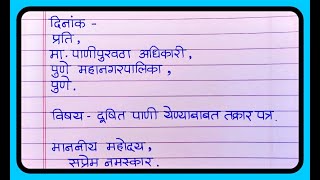 दिनांक -
प्रति,
मा. पाणीपुरवठा अधिकारी,
पुणे महानगरपालिका,
पुणे.
विषय - दूषित पाणी येण्याबाबत तक्रार पत्र.
माननीय महोदय,
सप्रेम नमस्कार.